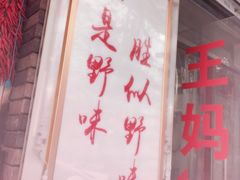 是野味
胜似野味
王妈